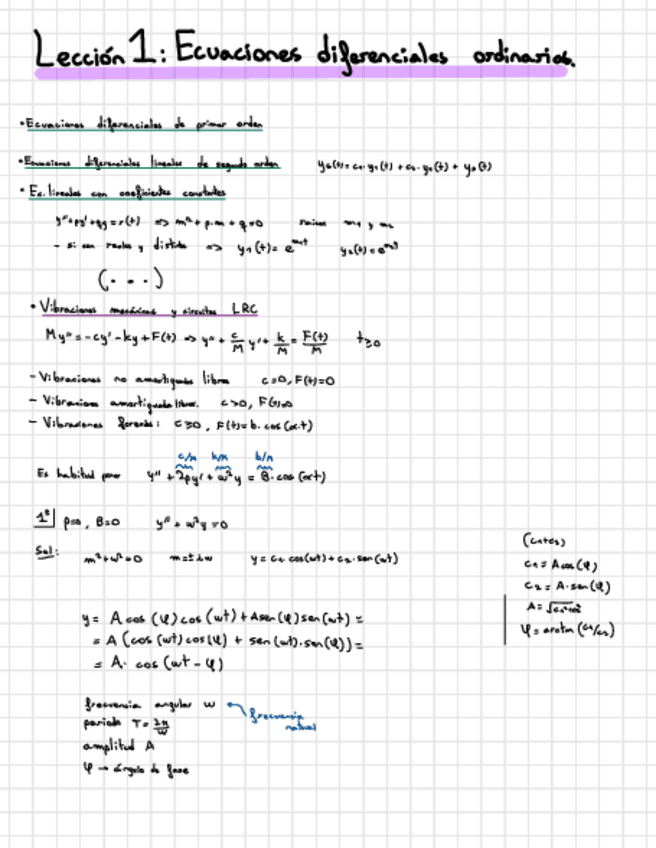 Lección 1: Ecuaciones diferenciales ordinarias.
• Ecuaciones diferenciales de primer orden
• Ecuaciones diferenciales lineales de segundo orden y_G(t) = c₁·y₁(t) + c₂·y₂(t) + y_p(t)
• Ec. lineales con coeficientes constantes
y''+py'+qy=r(t) => m²+p·m+q=0 raíces m₁ y m₂
- si son reales y distintas => y₁(t)=e^{m₁t} y₂(t)=e^{m₂t}
(...)
• Vibraciones mecánicas y circuitos LRC
My''=-cy'-ky+F(t) => y''+ c/M y'+ k/M = F(t)/M t≥0
- Vibraciones no amortiguadas libres c=0, F(t)=0
- Vibraciones amortiguadas libres. c>0, F(t)=0
- Vibraciones forzadas: c≥0, F(t)=b·cos(αt)
c/M k/M b/M
Es habitual poner y''+2py'+ω²y = B·cos(αt)
1º p=0, B=0 y''+ω²y=0
Sol: m²+ω²=0 m=±iω y=c₁ cos(ωt)+c₂·sen(ωt)
(cates)
c₁=A cos(φ)
c₂=A·sen(φ)
A=
φ=arctan
y= A cos(φ)cos(ωt)+A sen(φ)sen(ωt)=
= A(cos(ωt)cos(φ) + sen(ωt)·sen(φ))=
= A· cos(ωt-φ)
frecuencia angular ω ← frecuencia natural
periodo T=2π/ω
amplitud A
φ → ángulo de fase